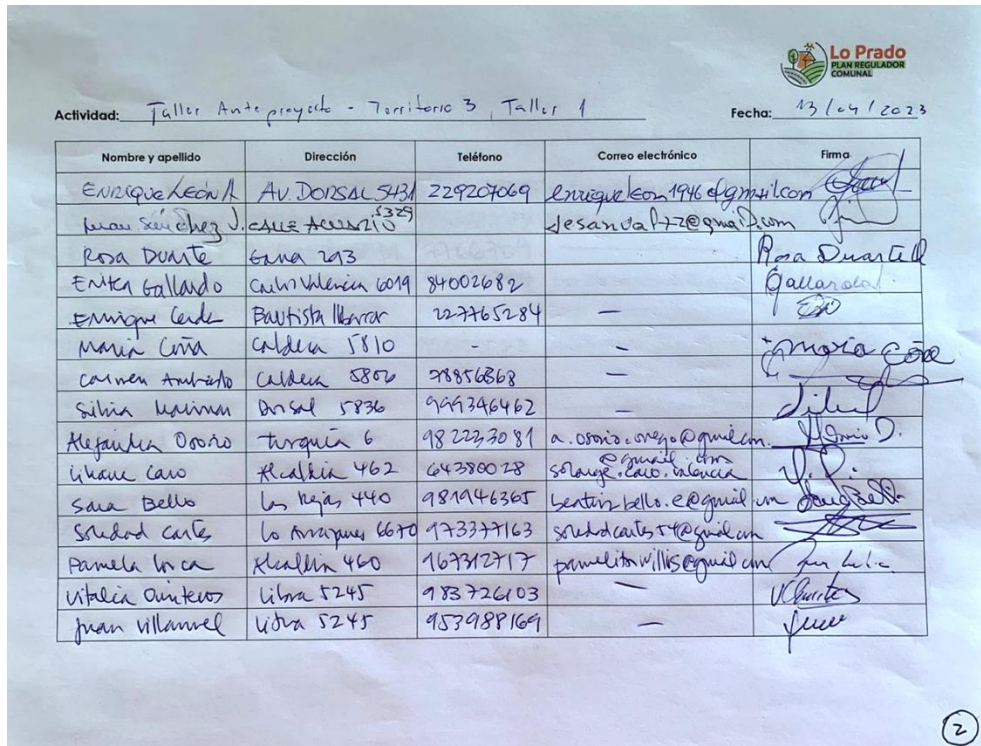 Lo Prado
PLAN REGULADOR
COMUNAL
Actividad: Taller Anteproyecto - Territorio 3, Taller 1 Fecha: 13/04/2023
Nombre y apellido Dirección Teléfono Correo electrónico Firma
ENRIQUE LEÓN A. AV. DORSAL 5431 229207069 enriqueleon1946@gmail.com
Sánchez J. CALLE 5329
Rosa Duarte 293 Rosa Duarte
Erika Gallardo Carlos Valencia 6019 84002682 Gallardo
Enrique Cerda Bautista 227765284 —
María Coña Caldera 5810 - — María Coña
Carmen Caldera 5806 78856368 —
Silvia Dorsal 5836 999346462 —
Alejandra Osorio turquía 6 982233081
Liliane Caro Alcaldía 462 64380028 solange.caro.valencia @gmail.com
Sara Bello Las Rejas 440 981946365
Soledad Cartes 6670 973377163 soledadcartes54@gmail.com
Pamela Lorca Alcaldía 460 967312717
Vitalia Quinteros Libra 5245 983726103 —
Juan Villanuel Libra 5245 953988169 —
2